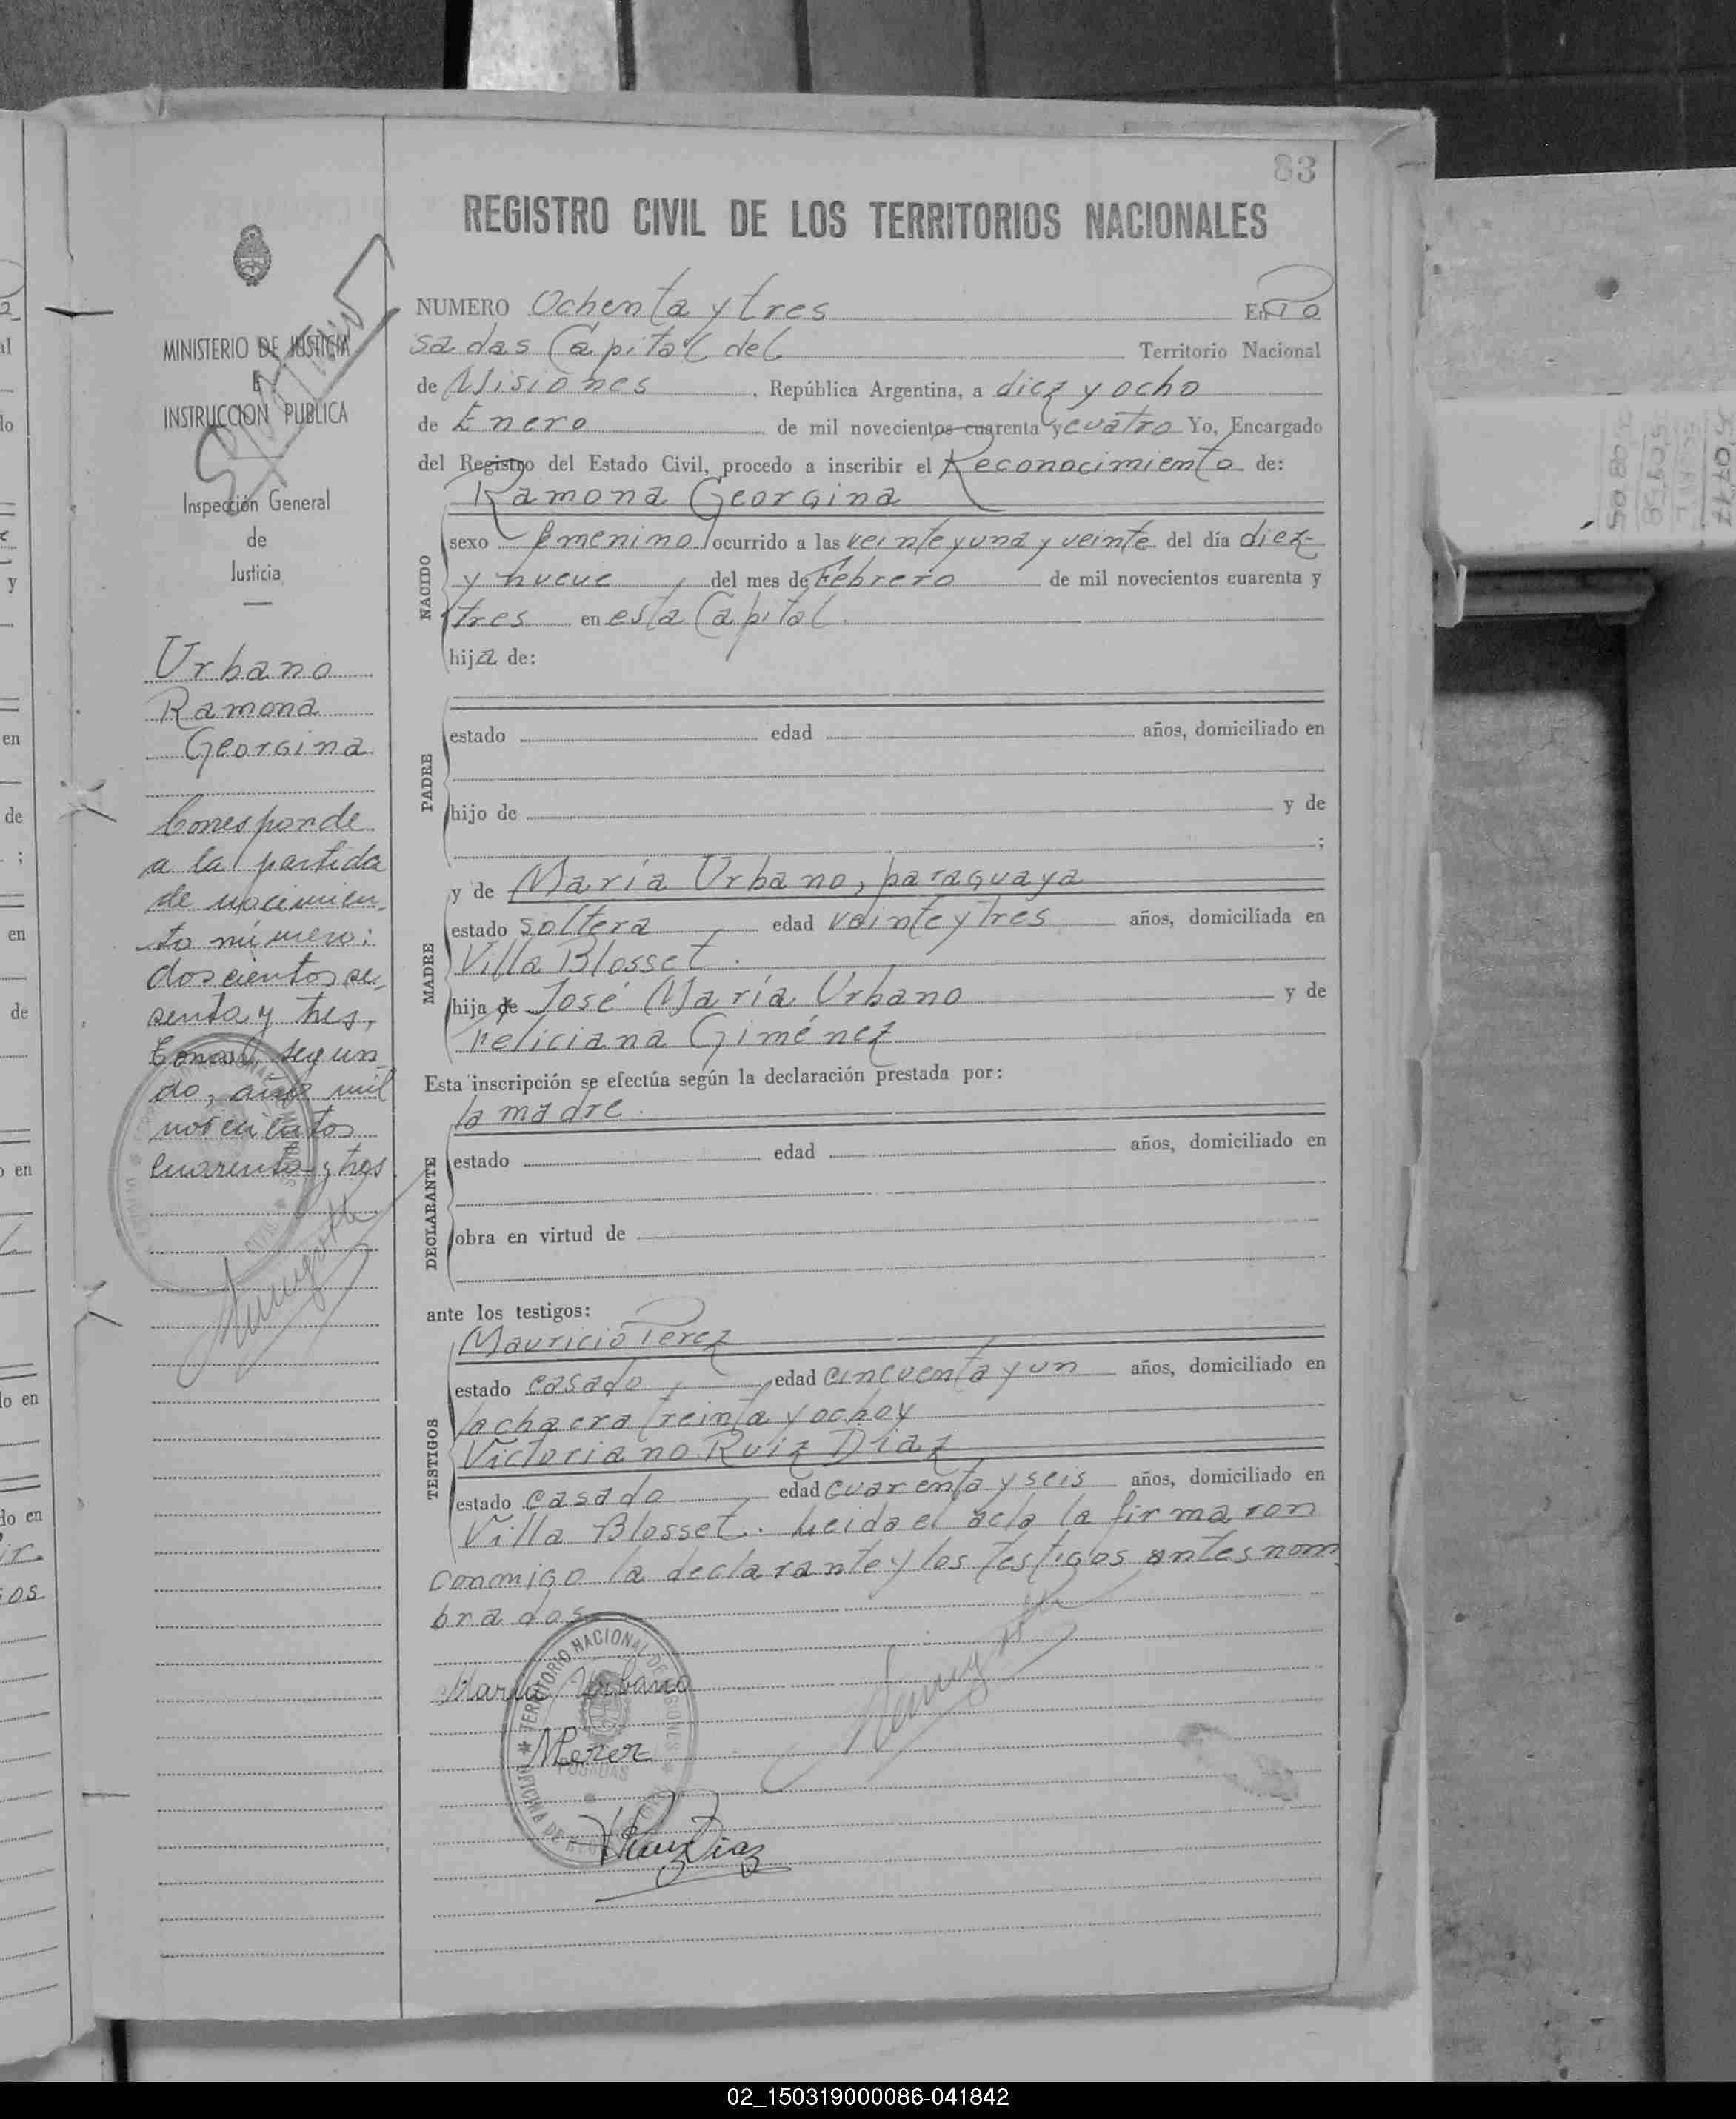 83
REGISTRO CIVIL DE LOS TERRITORIOS NACIONALES
MINISTERIO DE JUSTICIA
E
INSTRUCCION PUBLICA
Inspección General
de
Justicia
Urbano
Ramona
Georgina
Corresponde
a la partida
de nacimien-
to número:
doscientos se-
senta y tres,
Tomo segun
do, año mil
novecientos
cuarenta y tres
NUMERO Ochenta y tres En Po
sadas Capital del Territorio Nacional
de Misiones, República Argentina, a diez y ocho
de Enero de mil novecientos cuarenta y cuatro Yo, Encargado
del Registro del Estado Civil, procedo a inscribir el Reconocimiento de:
NACIDO
Ramona Georgina
sexo femenino ocurrido a las veinte y una y veinte del día diez
y nueve del mes de Febrero de mil novecientos cuarenta y
tres en esta Capital.
hija de:
PADRE
estado edad años, domiciliado en
hijo de y de
;
MADRE
y de María Urbano, paraguaya
estado soltera edad veinte y tres años, domiciliada en
Villa Blosset.
hija de José María Urbano y de
Feliciana Giménez
Esta inscripción se efectúa según la declaración prestada por:
DECLARANTE
la madre.
estado edad años, domiciliado en
obra en virtud de
ante los testigos:
TESTIGOS
Mauricio Perez
estado casado edad cincuenta y un años, domiciliado en
la chacra treinta y ocho y
Victoriano Ruiz Diaz
estado casado edad cuarenta y seis años, domiciliado en
Villa Blosset. Leida el acta la firmaron
conmigo la declarante y los testigos antes nom
brados
María Urbano
MPerez
VRuizDiaz
TERRITORIO NACIONAL DE MISIONES
POSADAS
OFICINA DE REGISTRO CIVIL
02_150319000086-041842